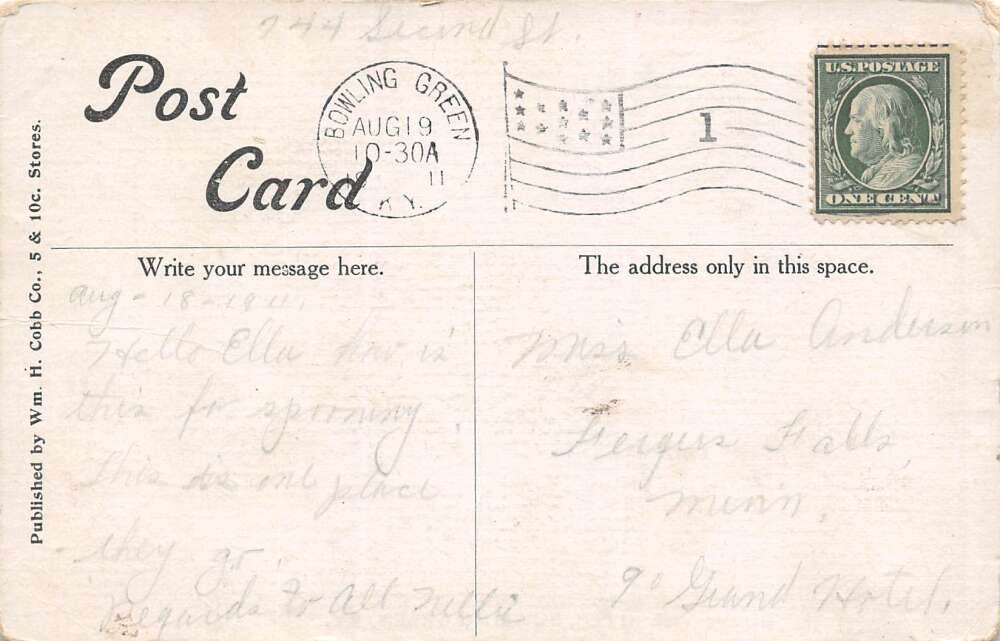 744 Second St.
Post
Card
BOWLING GREEN
AUG 19
10-30A
11
KY.
1
U.S. POSTAGE
ONE CENT
Published by Wm. H. Cobb Co., 5 & 10c. Stores.
Write your message here.
Aug - 18 - 1911.
Hello Ella how is
this for spooning?
This is one place
they go.
Regards to all Nellie
The address only in this space.
Miss Ella Anderson
Fergus Falls,
Minn.
Grand Hotel.